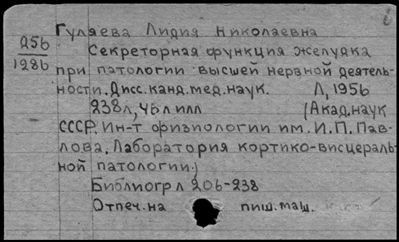 Гуляева Лидия Николаевна
а56
1286
Секреторная функция желудка
при патологии высшей нервной деятель-
ности. Дисс. канд. мед. наук. Л, 1956
238л, 46л илл (Акад. наук
СССР. Ин-т физиологии им. И.П. Пав-
лова. Лаборатория кортико-висцераль-
ной патологии.)
Библиогр л 206-238
Отпеч. на пиш. маш.